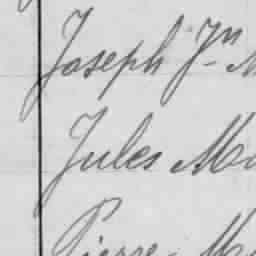 Joseph Jn
Jules
Pierre